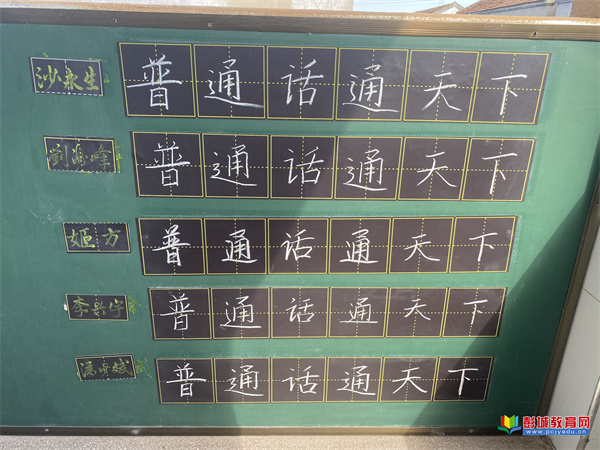 沙永生 普通话通天下
普通话通天下
姬方 普通话通天下
普通话通天下
普通话通天下
彭城教育网
www.pcjyedu.cn